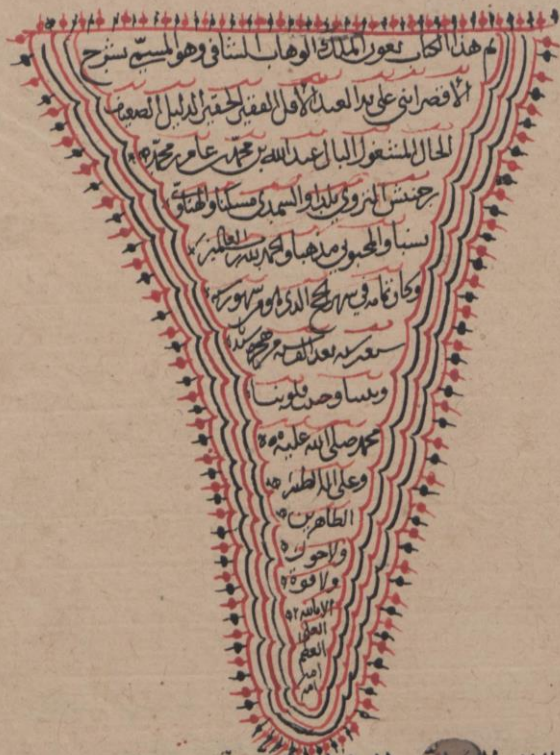 تم هذا الكتاب بعون الملك الوهاب الشافي وهو المسمى بشرح
الاقصرائي على يد العبد الاقل الفقير الحقير الذليل الضعيف
الحال المشغول البال عبدالله بن محمد بن عامر بن محمد
النزوي بلدا والسمدي مسكنا
نسبا والمحبوبي مذهبا والحمد لله رب العالمين
وكان تمامه في شهر الحج الذي هو من شهور
سنة بعد الف سنة من هجرة
نبينا وحبيب قلوبنا
محمد صلى الله عليه
وعلى اله الطيبين
الطاهرين
ولا حول
ولا قوة
الا بالله
العلي
العظيم